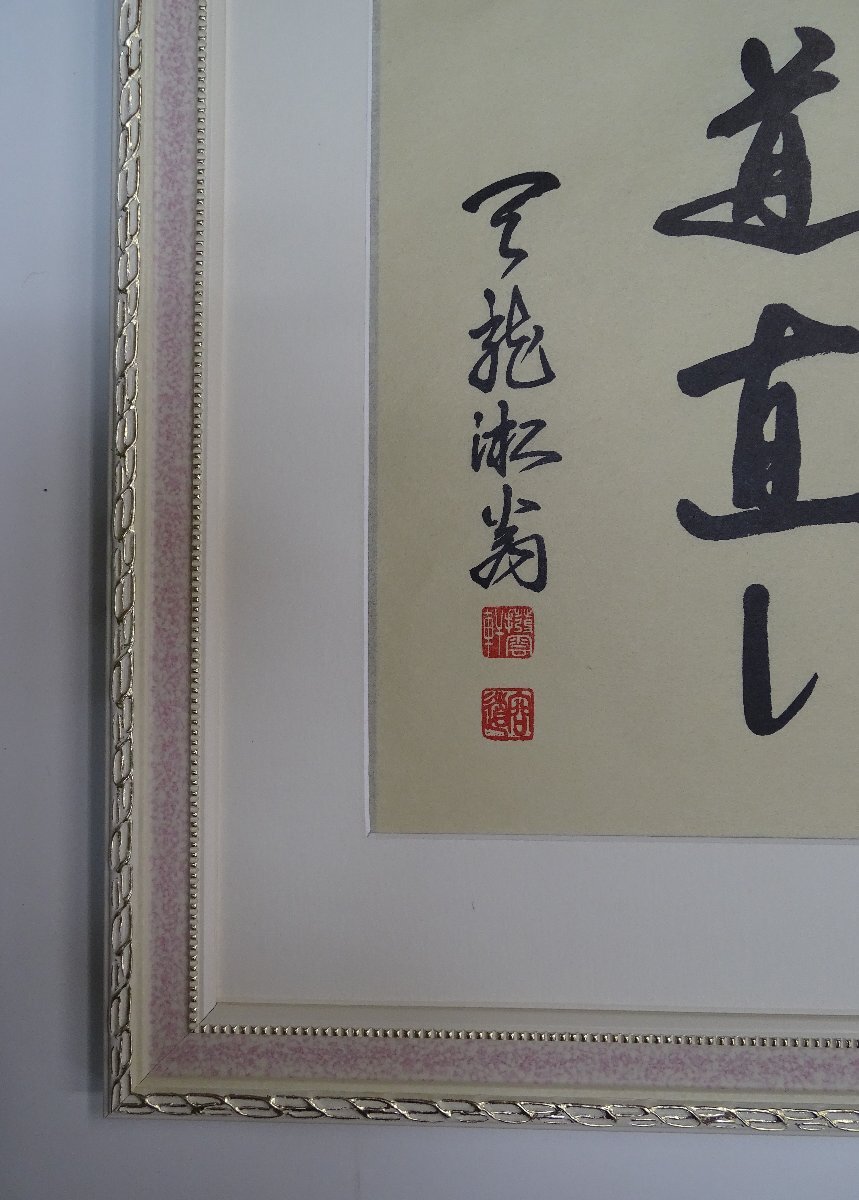 道直し
天龍淞翁